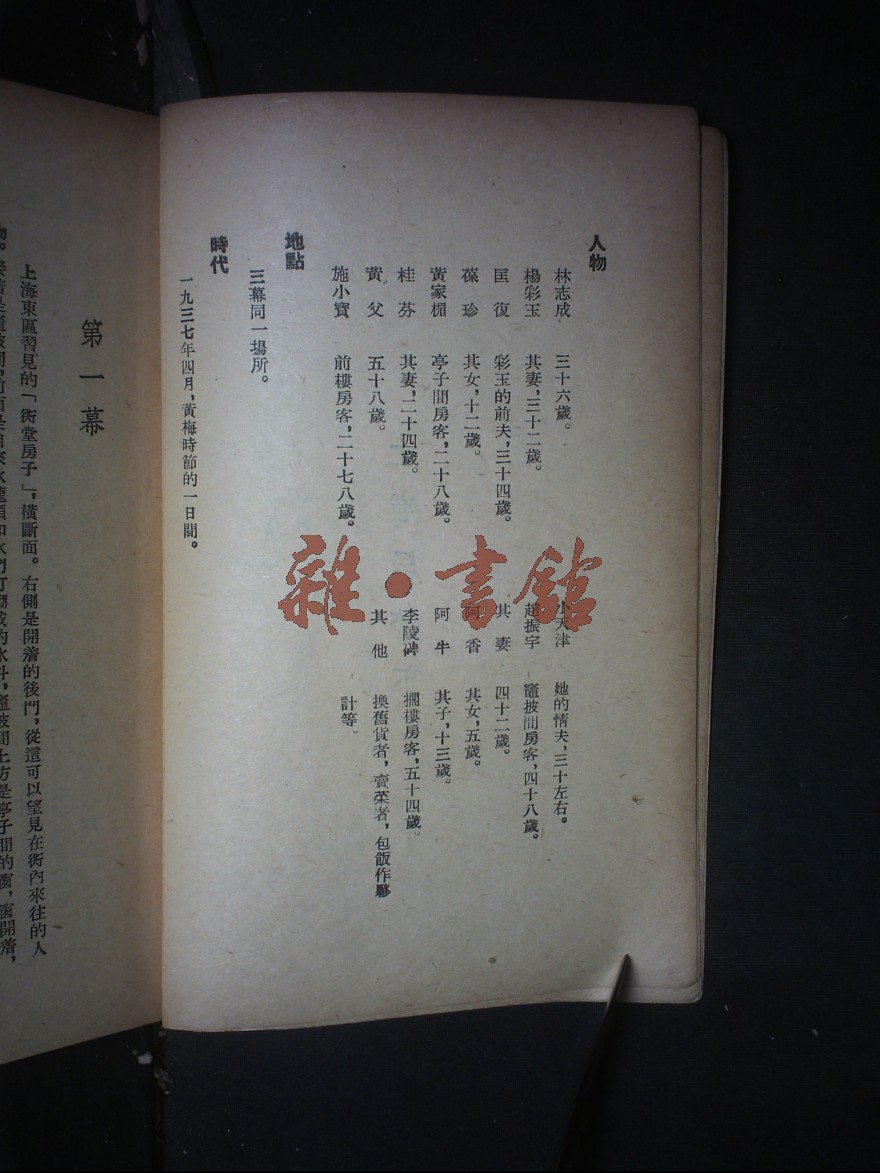 人物
林志成 三十六歲。
楊彩玉 其妻,三十二歲。
匡復 彩玉的前夫,三十四歲。
葆珍 其女,十二歲。
黃家楣 亭子間房客,二十八歲。
桂芬 其妻,二十四歲。
黃父 五十八歲。
施小寶 前樓房客,二十七八歲。
小天津 她的情夫,三十左右。
趙振宇 竈披間房客,四十八歲。
其妻 四十二歲。
阿香 其女,五歲。
阿牛 其子,十三歲。
李陵碑 擱樓房客,五十四歲。
其他 換舊貨者,賣菜者,包飯作夥
計等。
地點
三幕同一場所。
時代
一九三七年四月,黃梅時節的一日間。
雜·書館
第一幕
上海東區習見的「衖堂房子」,橫斷面。右側是開着的後門,從這可以望見在衖內來往的人
亭子間的窗,窗開着,